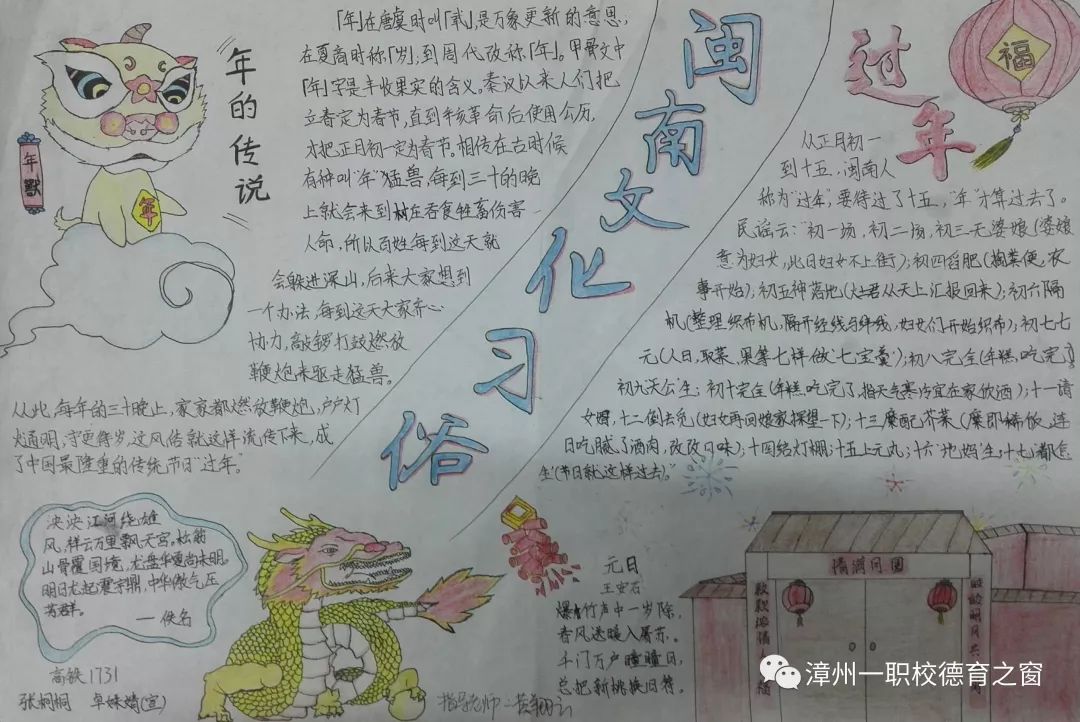 年的传说
年獸
年
「年」在唐虞时叫「载」,是万象更新的意思,
在夏商时称「岁」,到周代改称「年」。甲骨文中
「年」字是丰收果实的含义,秦汉以来人们把
立春定为春节,直到辛亥革命后使用公历,
才把正月初一定为春节。相传在古时候
有种叫“年”猛兽,每到三十的晚
上就会来到村庄吞食牲畜伤害
人命,所以百姓每到这天就
会躲进深山,后来大家想到
一个办法,每到这天大家齐心
协力,敲锣打鼓燃放
鞭炮来驱走猛兽。
从此,每年的三十晚上,家家都燃放鞭炮,户户灯
火通明,守更待岁,这风俗就这样流传下来,成
了中国最隆重的传统节日“过年”。
闽南文化习俗
过年
福
从正月初一
到十五,闽南人
称为“过年”,要待过了十五,“年”才算过去了。
民谣云:“初一场,初二场,初三无婆娘(婆娘
意为妇女,此日妇女不上街);初四舀肥(摘菜便,农
事开始);初五神落地(灶君从天上汇报回来);初六隔
机(整理织布机,隔开经线与纬线,妇女们开始织布);初七七
元(人日,取菜、果等七样做“七宝羹”);初八完全(年糕,吃完);
初九天公生;初十完全(年糕吃完了,指天气寒冷宜在家饮酒);十一请
女婿,十二倒去觅(妇女再回娘家探望一下);十三糜配芥菜(糜即稀饭,连
日吃腻了酒肉,改改口味);十四结灯棚;十五上元丸;十六“地妈”生,十七都怎
生(节日就这样过去)。”
泱泱江河绕雄
风,祥云万里飘天宫。松翁
山骨覆国境,龙盘华夏尚未明。
明日龙起震宇鼎,中华傲气压
苏群。
—佚名
高铁1731
张桐桐 卓妹婧(宣)
指导老师:
元日
王安石
爆竹声中一岁除,
春风送暖入屠苏。
千门万户曈曈日,
总把新桃换旧符。
情满同圆
漳州一职校德育之窗